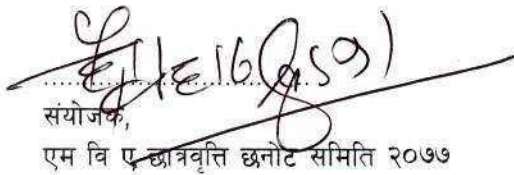 संयोजक,
एम वि ए छात्रवृत्ति छनोट समिति २०७७